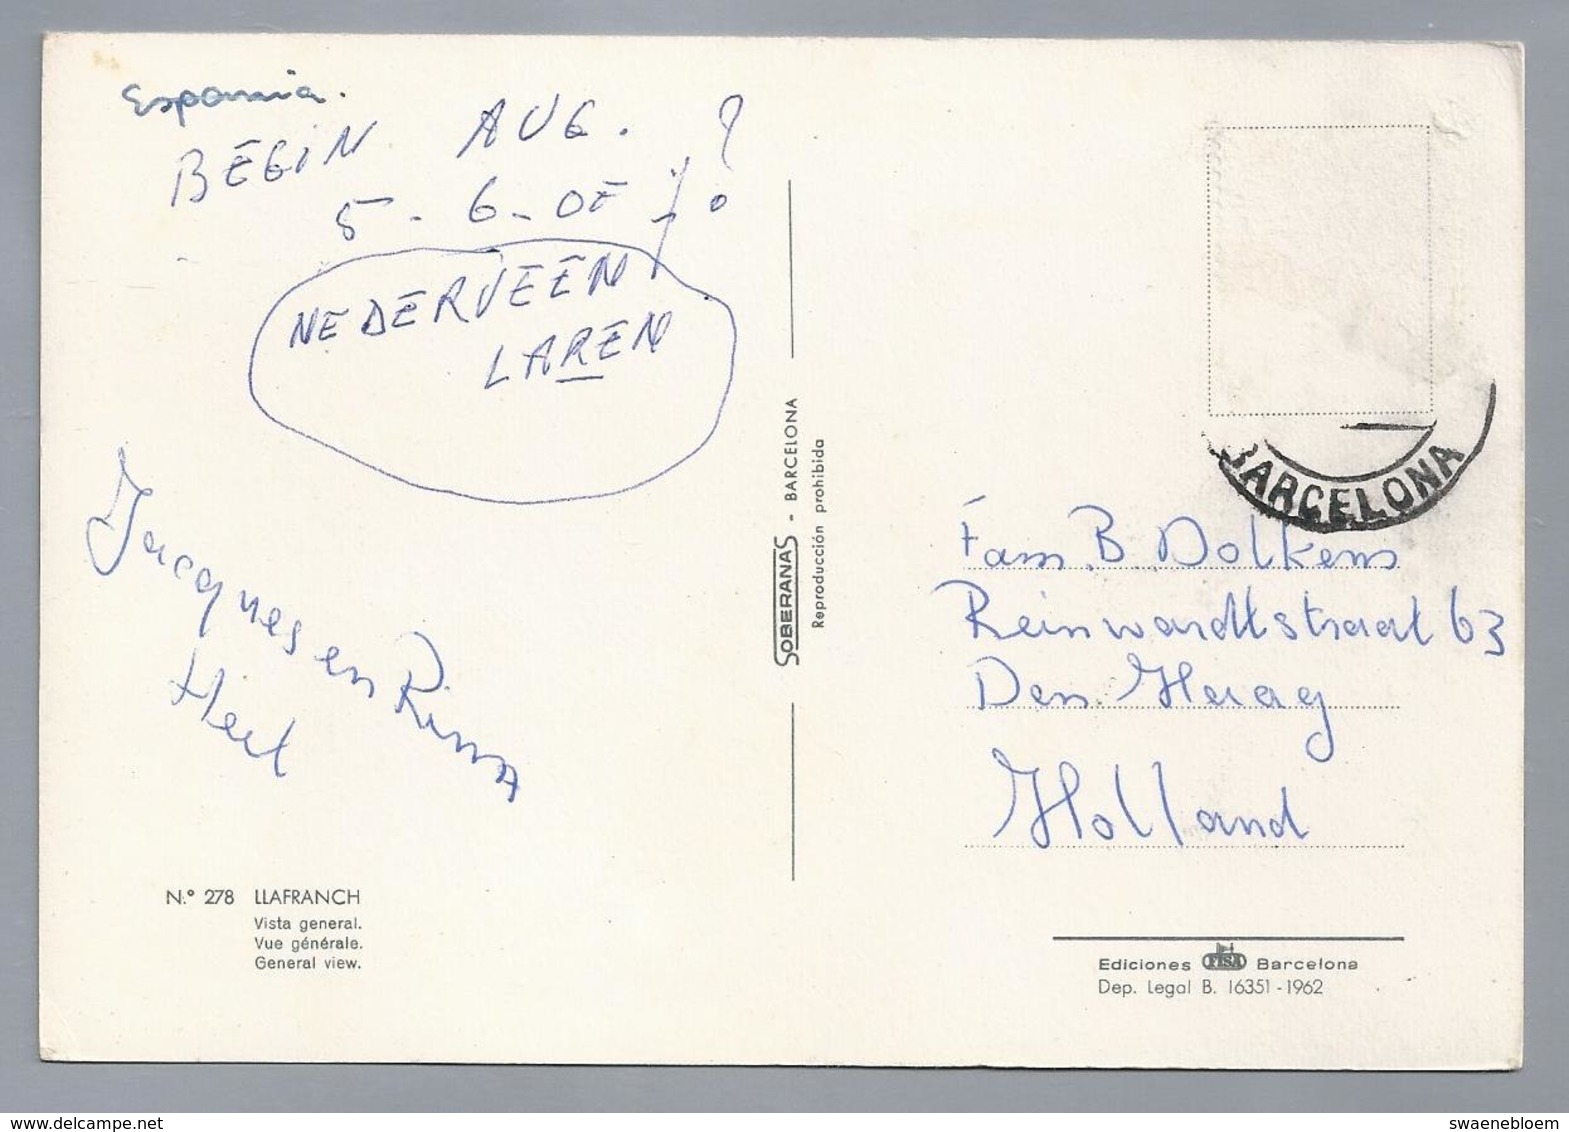 Espania.
BEGIN AUG. ?
5 - 6 - OF 7 ?
NEDERVEEN
LAREN
Jacques en Rina
Hert
N.º 278 LLAFRANCH
Vista general.
Vue générale.
General view.
SOBERANAS - BARCELONA
Reproducción prohibida
BARCELONA
Fam. B. Dolkens
Reinwardtstraat 63
Den Haag
Holland
Ediciones FISA Barcelona
Dep. Legal B. 16351 - 1962
www.delcampe.net
swaenebloem